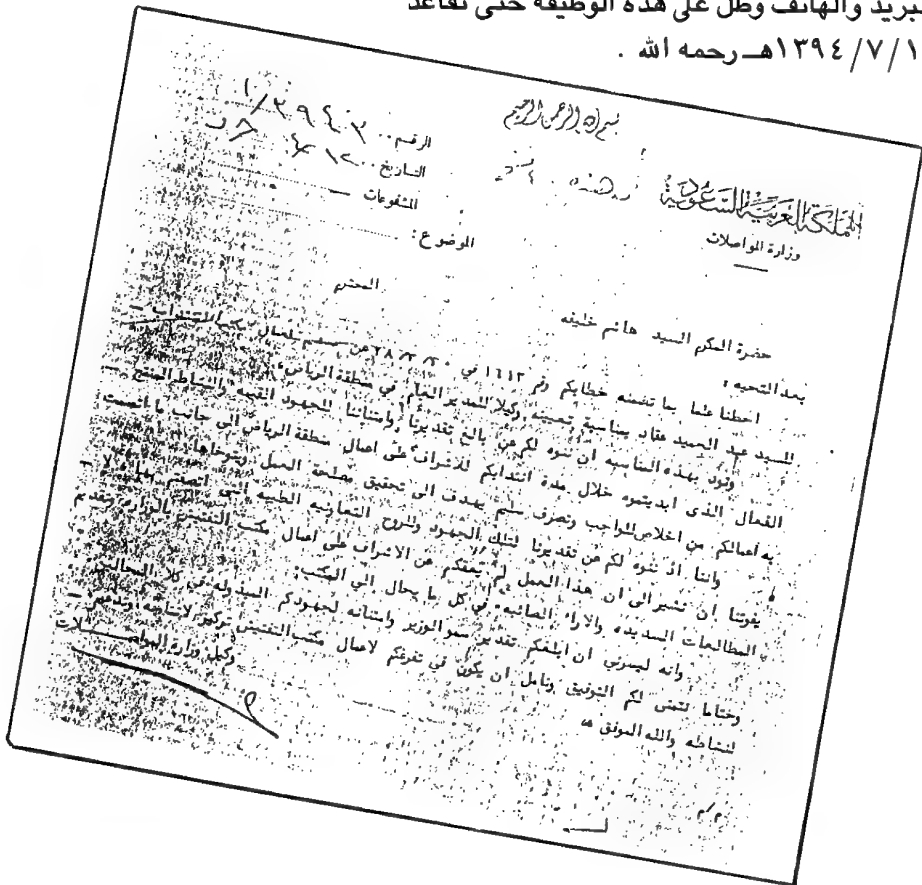 لبريد والهاتف وظل على هذه الوظيفة حتى تقاعد
١٣٩٤/٧/١هـ رحمه الله .
بسم الله الرحمن الرحيم
المملكة العربية السعودية
وزارة المواصلات
الرقم
التاريخ
المشفوعات
الموضوع :
حضرة المكرم السيد هاشم خليفه المحترم
بعد التحيه :
احطنا علما بما تضمنه خطابكم رقم ١٦١٣ في عن
للسيد عبد الحميد عقاد بمناسبة تعيينه وكيلا للمدير العام في منطقة الرياض
ونود بهذه المناسبه ان ننوه لكم عن بالغ تقديرنا وامتناننا للجهود القيمه والنشاط المنتج
الفعال الذى ابديتموه خلال مدة انتدابكم للاشراف على اعمال منطقة الرياض الى جانب ما اتسمت
به أعمالكم من اخلاص للواجب وتصرف سليم يهدف الى تحقيق مصلحة العمل ويتوخاها
واننا اذ ننوه لكم عن تقديرنا لتلك الجهود والروح التعاونيه الطيبه التي اتصفتم بها لا
يفوتنا ان نشير الى ان هذا العمل لم يعفكم عن الاشراف على اعمال مكتب التفتيش بالوزاره وتقديم
المطالعات السديده والاراء الصائبه في كل ما يحال الى المكتب
وانه ليسرني ان ابلغكم تقدير سمو الوزير وامتنانه لجهودكم المبذوله في كلا المجالين
وختاما نتمنى لكم التوفيق ونامل ان يكون في تفرغكم لاعمال مكتب التفتيش تركيز لاساسه وتدعيم
لنشاطه والله الموفق
وكيل وزارة المواصلات